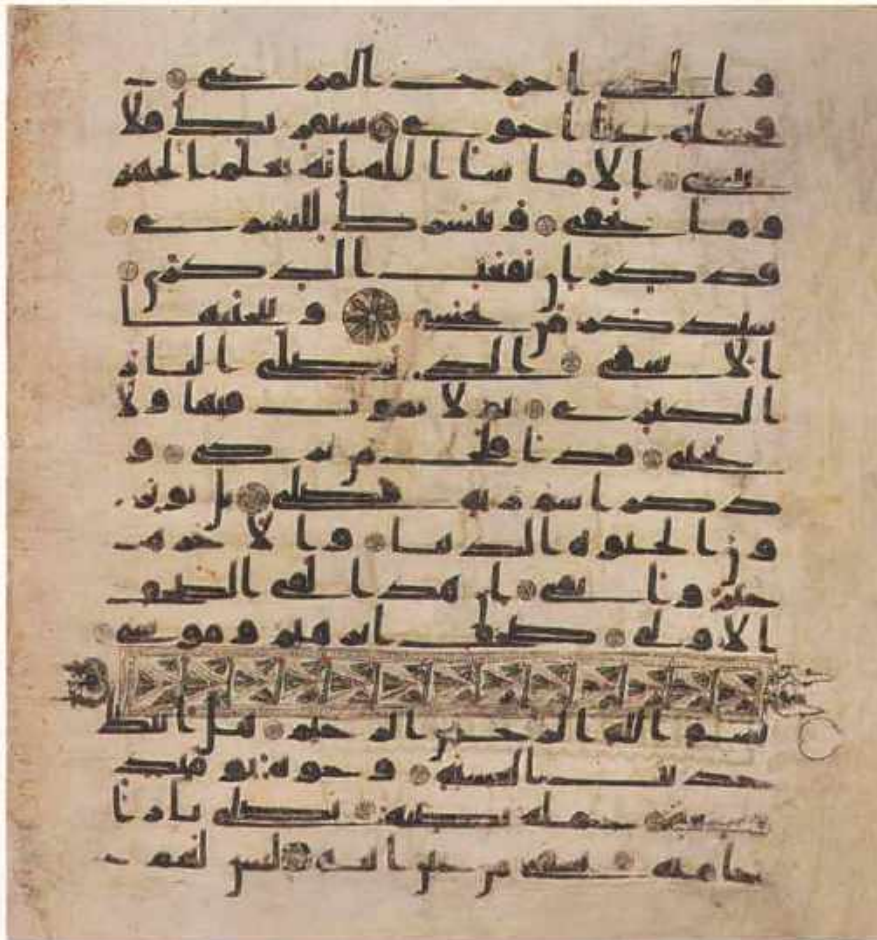 والذي اخرج المرعى ف
جعله غثا احوى سنقريك فلا
تنسى الا ما شا الله انه يعلم الجهر
وما يخفى ونيسرك لليسرى
فذكر ان نفعت الذكرى
سيذكر من يخشى ويتجنبها
الاشقى الذي يصلى النار
الكبرى ثم لا يموت فيها ولا
يحيى قد افلح من تزكى و
ذكر اسم ربه فصلى بل توثر
ون الحيوة الدنيا والاخرة
خير وابقى ان هذا لفي الصحف
الاولى صحف ابرهيم وموسى
بسم الله الرحمن الرحيم هل اتيك
حديث الغشية وجوه يومئذ
خشعة عملة ناصبة تصلى نارا
حامية تسقى من عين انية ليس لهم